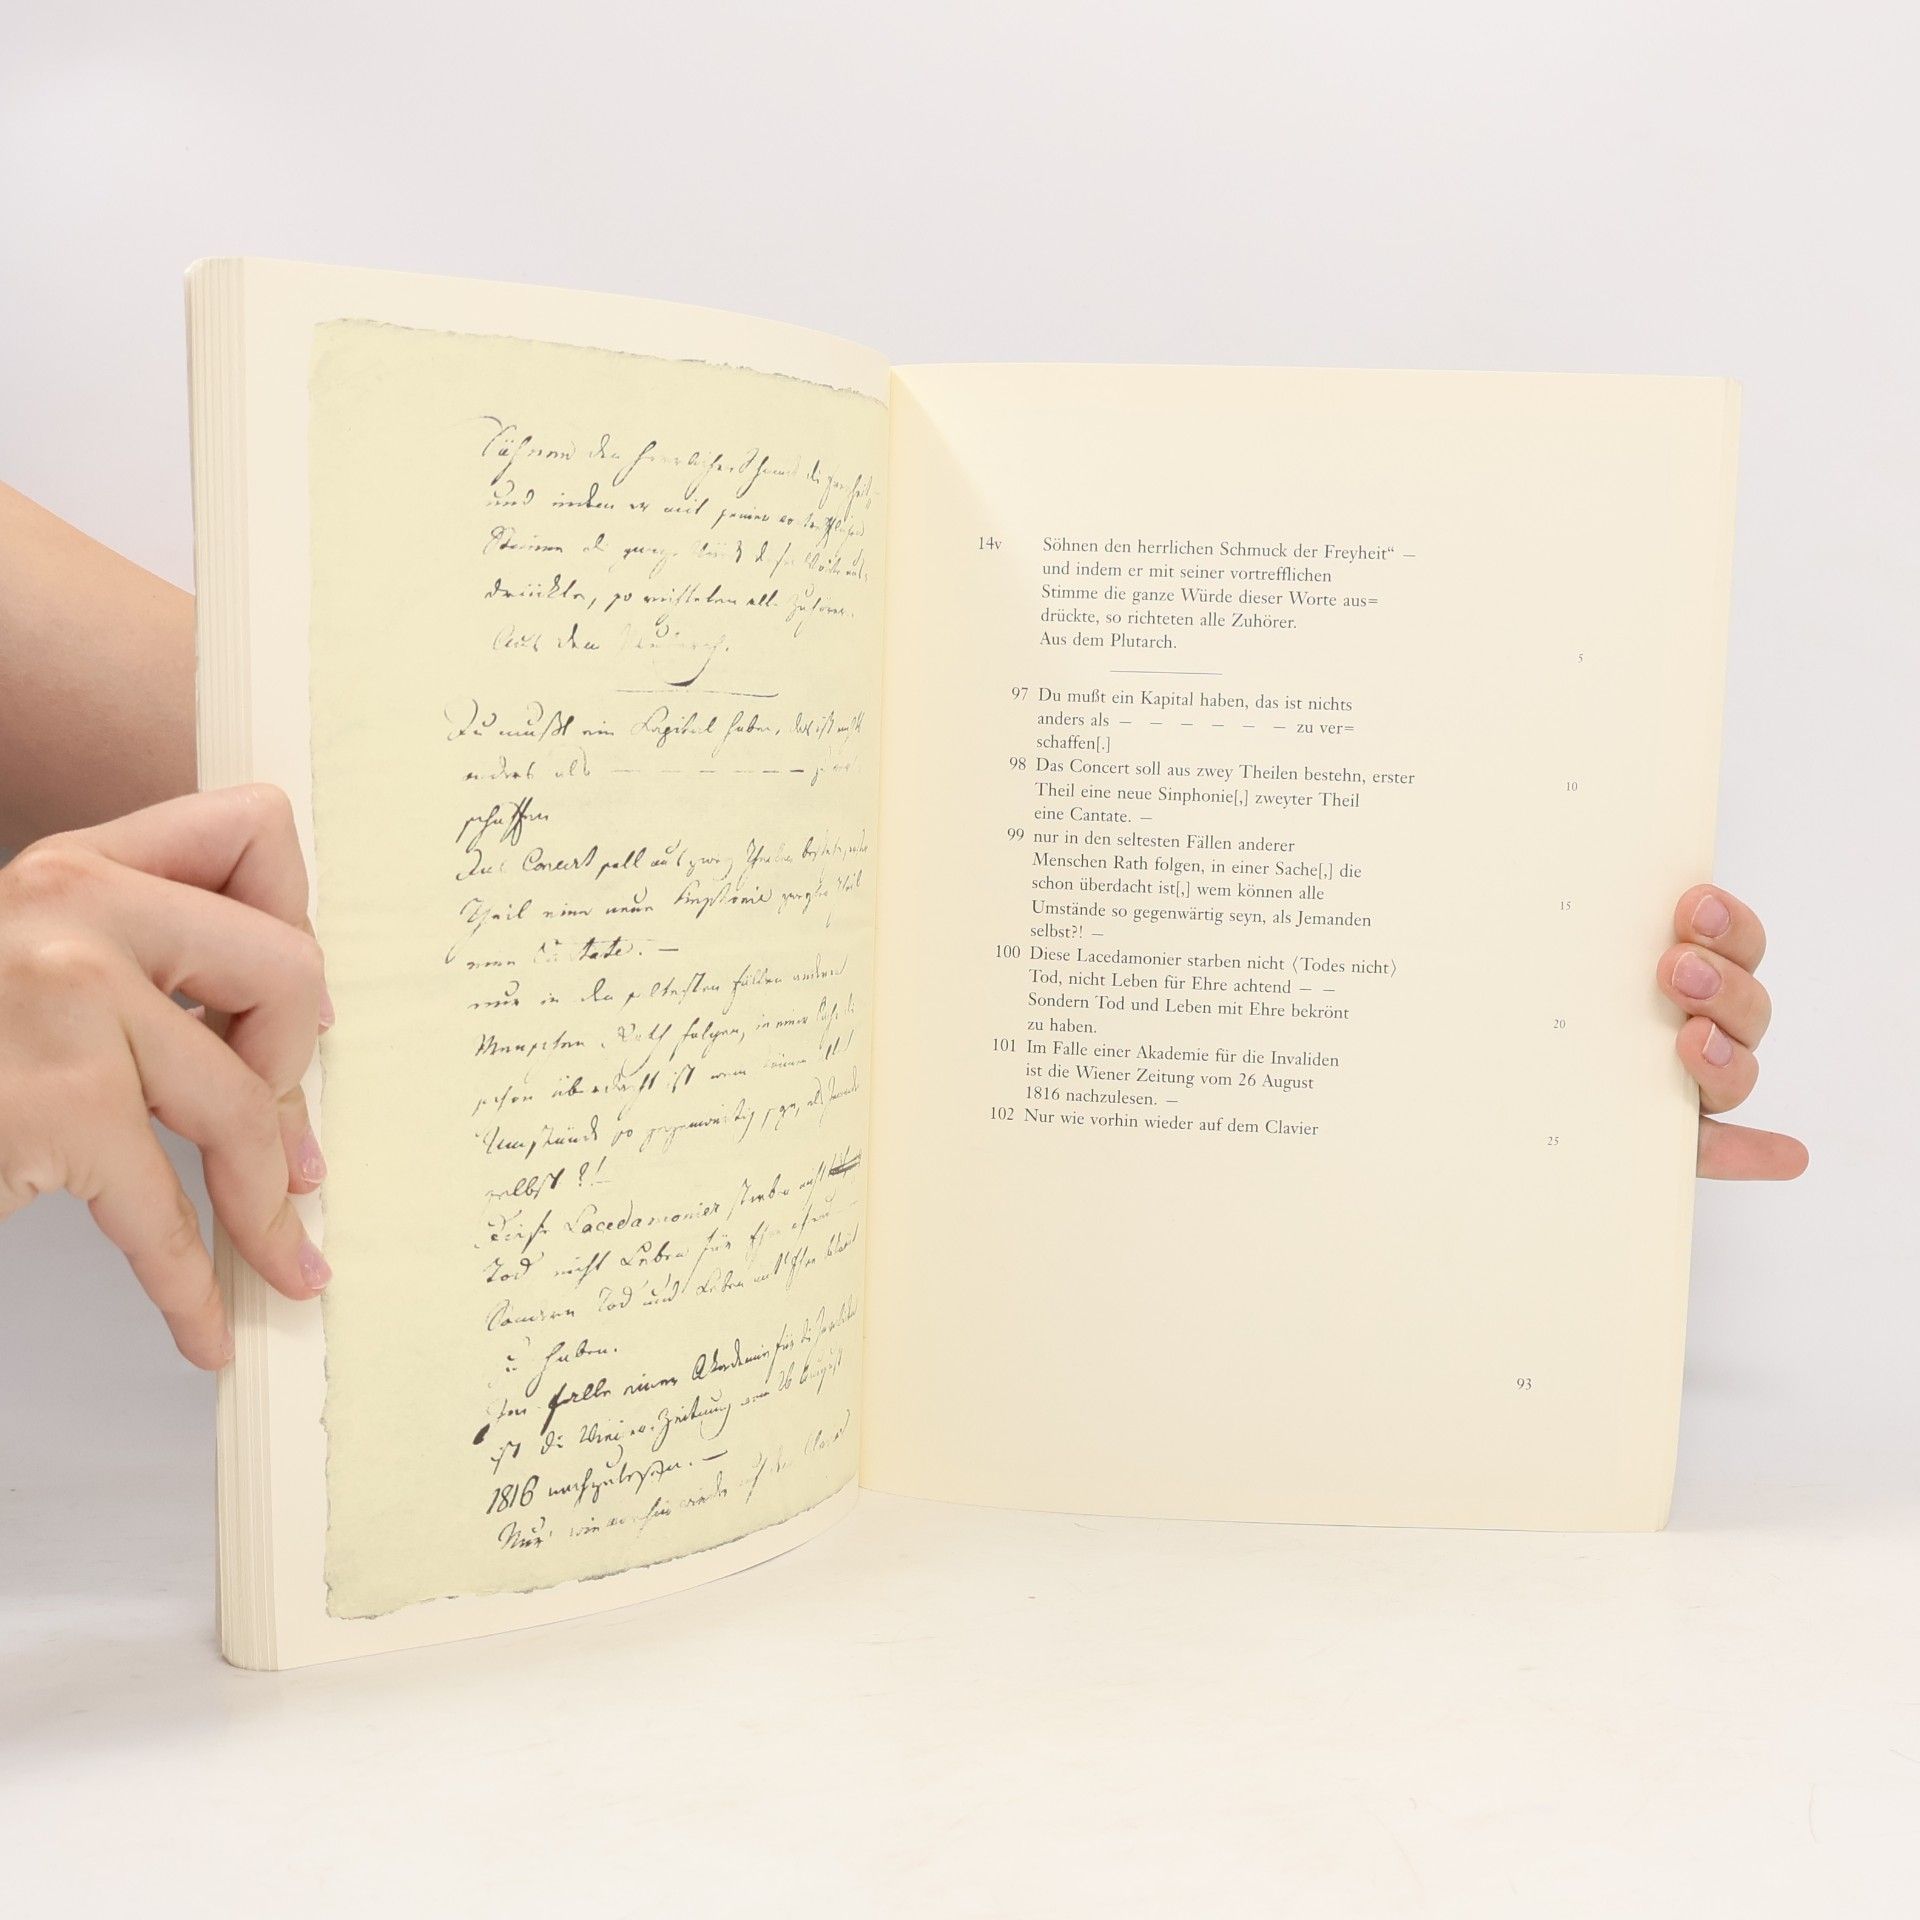 Söhnen den herrlichen Schmuck der Freyheit“ —
und indem er mit seiner vortrefflichen
Stimme die ganze Würde dieser Worte aus=
drückte, so richteten alle Zuhörer.
Aus dem Plutarch.
Du mußt ein Kapital haben, das ist nichts
anders als — — — — — — zu ver=
schaffen
Das Concert soll aus zwey Theilen bestehn, erster
Theil eine neue Sinphonie zweyter Theil
eine Cantate. —
nur in den seltesten Fällen anderer
Menschen Rath folgen, in einer Sache die
schon überdacht ist wem können alle
Umstände so gegenwärtig seyn, als Jemanden
selbst?! —
Diese Lacedamonier starben nicht
Tod, nicht Leben für Ehre achtend — —
Sondern Tod und Leben mit Ehre bekrönt
zu haben.
Im Falle einer Akademie für die Invaliden
ist die Wiener Zeitung vom 26 August
1816 nachzulesen. —
Nur wie vorhin wieder auf dem Clavier
14v Söhnen den herrlichen Schmuck der Freyheit“ —
und indem er mit seiner vortrefflichen
Stimme die ganze Würde dieser Worte aus=
drückte, so richteten alle Zuhörer.
Aus dem Plutarch. 5
97 Du mußt ein Kapital haben, das ist nichts
anders als — — — — — — zu ver=
schaffen[.]
98 Das Concert soll aus zwey Theilen bestehn, erster
Theil eine neue Sinphonie[,] zweyter Theil 10
eine Cantate. —
99 nur in den seltesten Fällen anderer
Menschen Rath folgen, in einer Sache[,] die
schon überdacht ist[,] wem können alle
Umstände so gegenwärtig seyn, als Jemanden 15
selbst?! —
100 Diese Lacedamonier starben nicht ⟨Todes nicht⟩
Tod, nicht Leben für Ehre achtend — —
Sondern Tod und Leben mit Ehre bekrönt
zu haben. 20
101 Im Falle einer Akademie für die Invaliden
ist die Wiener Zeitung vom 26 August
1816 nachzulesen. —
102 Nur wie vorhin wieder auf dem Clavier
25
93